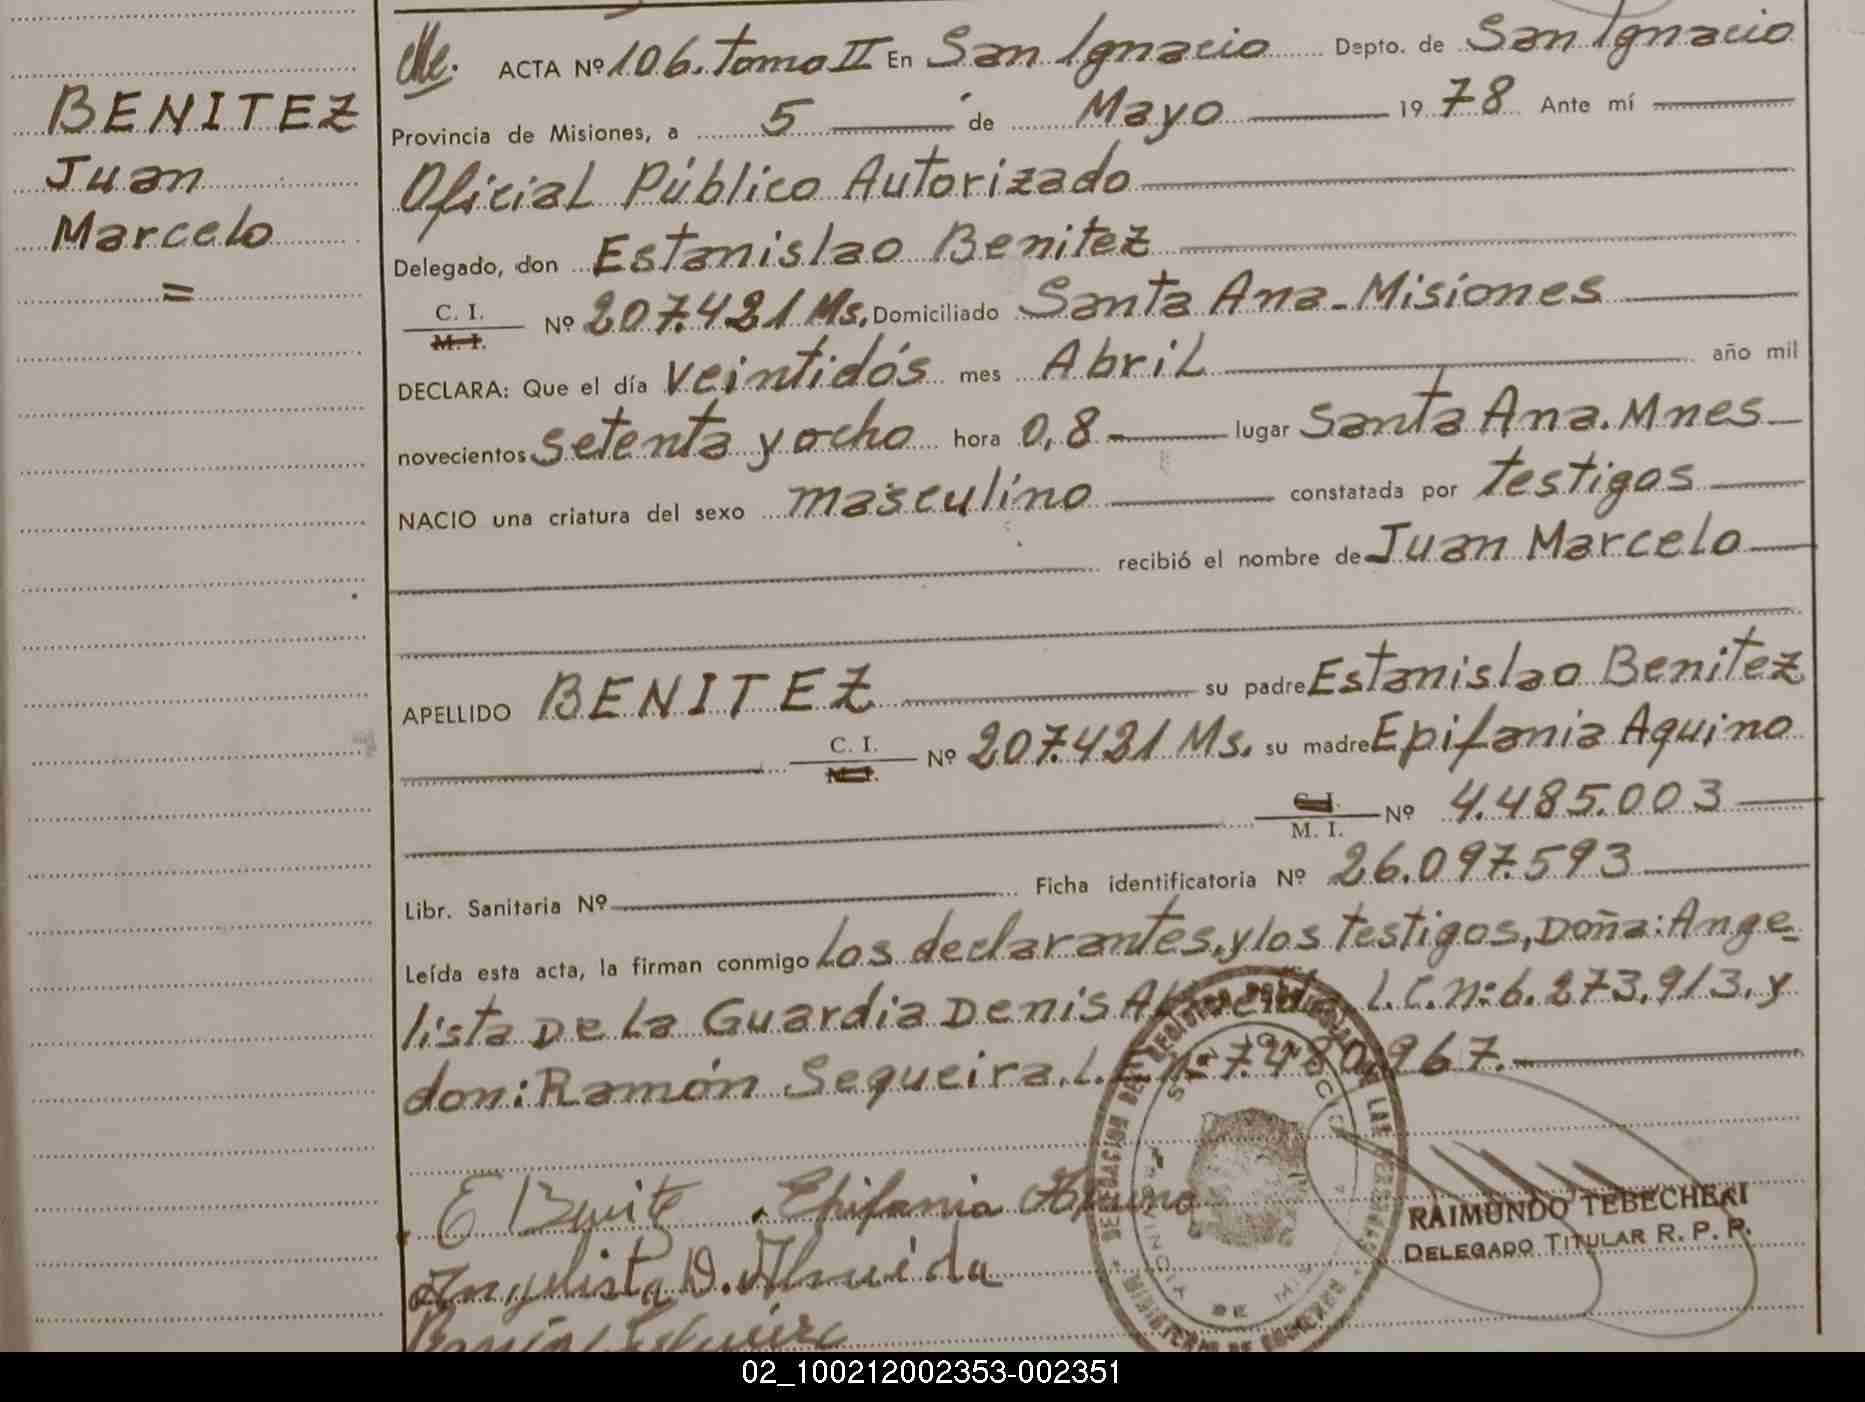 BENITEZ
Juan
Marcelo
=
ACTA Nº 106. Tomo II En San Ignacio Depto. de San Ignacio
Provincia de Misiones, a 5 de Mayo 19 78 Ante mí
Oficial Público Autorizado
Delegado, don Estanislao Benitez
C. I.
M. I.
Nº 207.421 Ms. Domiciliado Santa Ana - Misiones
DECLARA: Que el día veintidós mes Abril año mil
novecientos setenta y ocho hora 0,8 lugar Santa Ana. Mnes
NACIO una criatura del sexo masculino constatada por testigos
recibió el nombre de Juan Marcelo
APELLIDO BENITEZ su padre Estanislao Benitez
C. I.
M. I.
Nº 207.421 Ms. su madre Epifania Aquino
C. I.
M. I.
Nº 4.485.003
Libr. Sanitaria Nº Ficha identificatoria Nº 26.097.593
Leída esta acta, la firman conmigo los declarantes, y los testigos, Doña: Ange-
lista De La Guardia Denis L.C.N: 6.273.913, y
don: Ramón Sequeira. L.E. 7.480.967.
E Benitz . Epifania Aquino
Angelista D. Almeida
Ramón Sequeira
PROVINCIA DE MISIONES
RAIMUNDO TEBECHERI
DELEGADO TITULAR R. P. P.
02_100212002353-002351